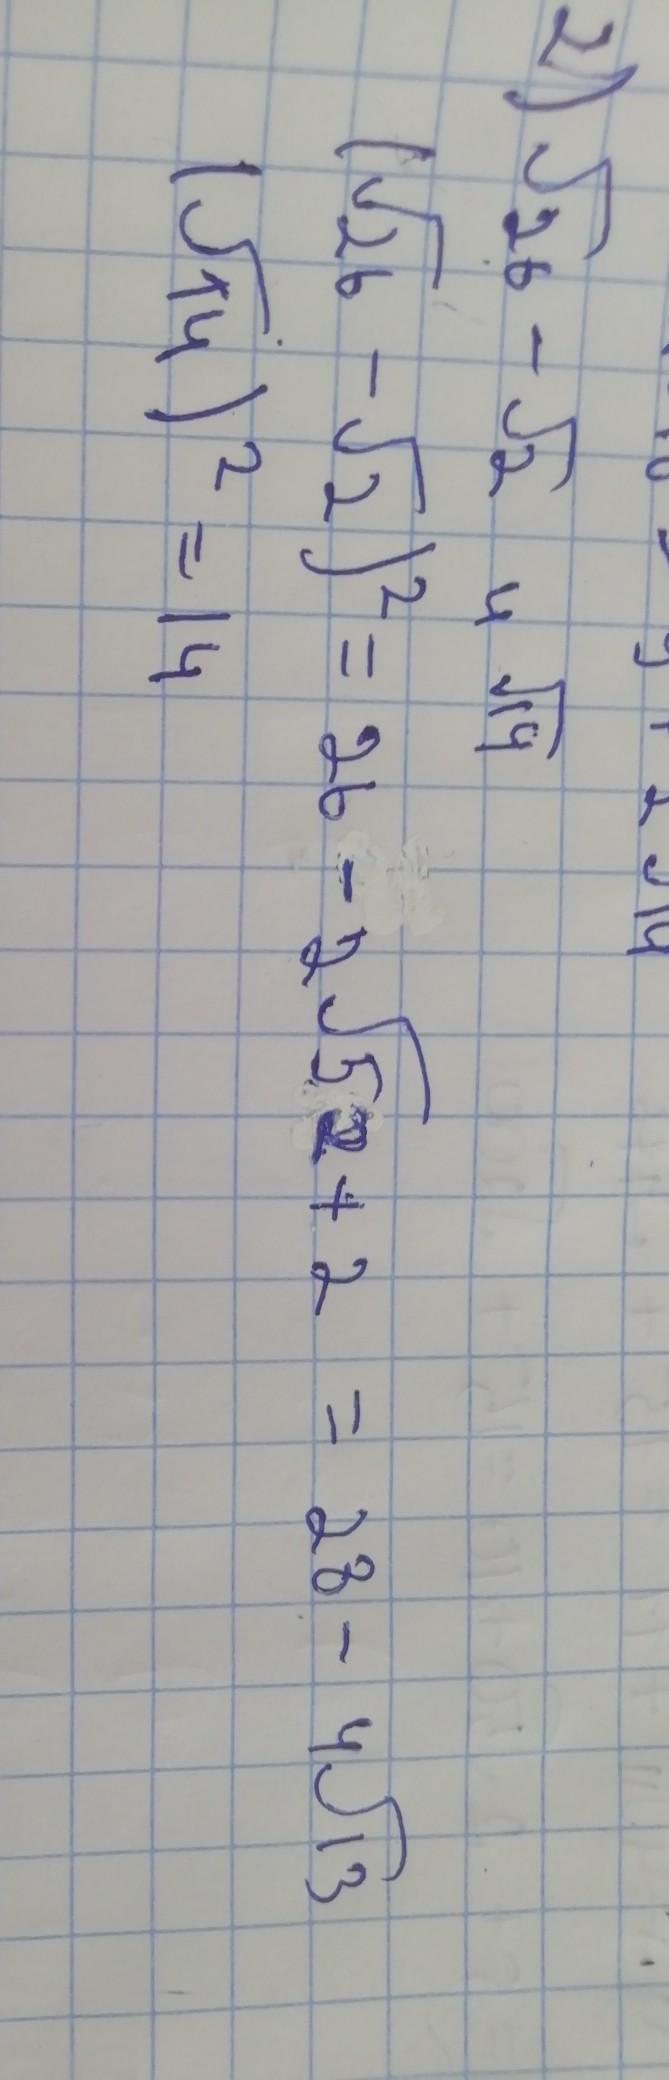 2) √26 - √2 и √14
(√26 - √2)² = 26 - 2√52 + 2 = 28 - 4√13
(√14)² = 14